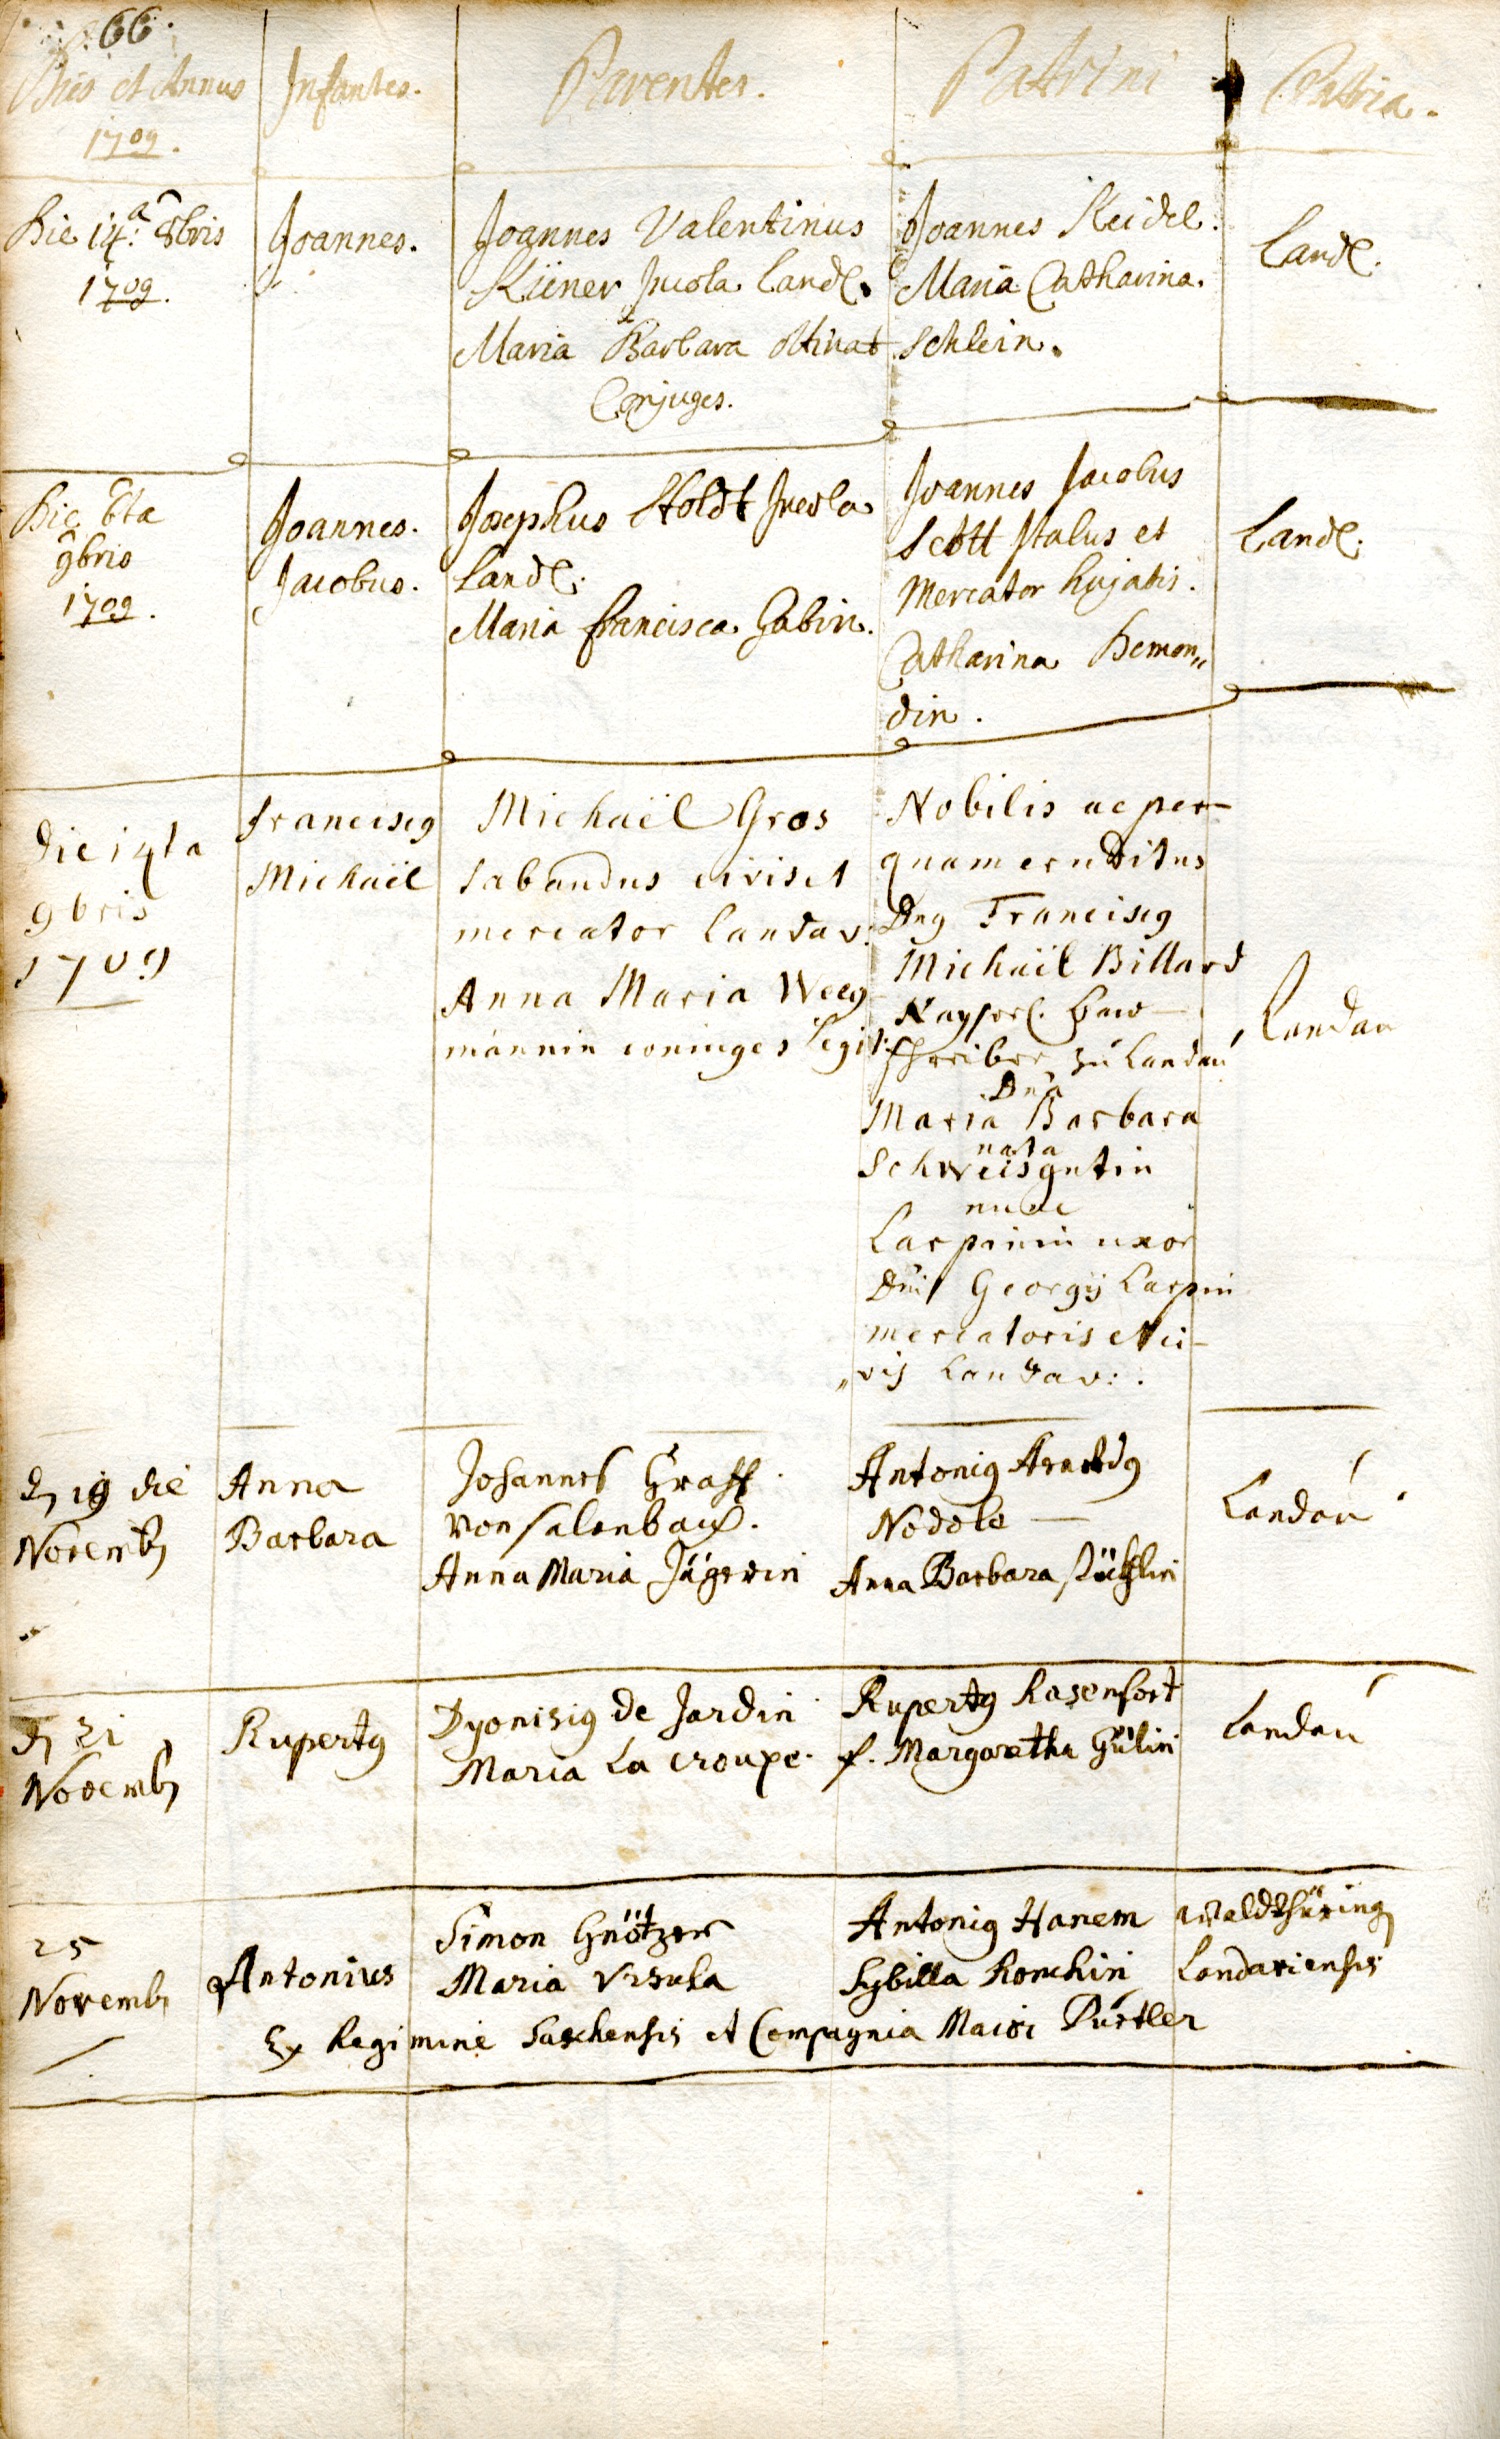 66.
Dies et Annus
1709.
Infantes.
Parentes.
Patrini
Patria.
Die 14.a 8bris
1709.
Joannes.
Joannes Valentinus
Küner Incola Land.
Maria Barbara
Conjuges.
Joannes Keidel.
Maria Catharina.
Schlein.
Land.
Die 6ta
9bris
1709.
Joannes.
Jacobus.
Josephus Stoldt Incola
Land.
Maria francisca Gabin.
Joannes Jacobus
Scott Italus et
Mercator hujatis.
Catharina Hemon„
din.
Land.
Die 14ta
9bris
1709
Franciscq
Michaël
Michaël Gros
Sabaudus civis et
mercator Landav:
Anna Maria Weeg
männin coniuges legit:
Nobilis ac per-
quam eruditus
Dnq Franciscq
Michaël Billard
Kayserl. baw-
schreiber zu Landau
Dna
Maria Barbara
nata
Schweisgutin
nunc
Carpinin uxor
Dni Georgij Carpin
mercatoris et ci-
„vis Landav:.
Landau
d 19 die
Novemb
Anna
Barbara
Johannes Graff
von
Anna Maria Jägerin
Antoniq
Nodele
Anna Barbara
Landau
d 21
Novemb
Rupertq
Dyonisiq de Jardin
Maria La croupe.
Rupertq Rasenfort
f. Margaretha Gülin
Landau
25
Novemb
Antonius
Simon Gnötzer
Maria Vrsula
Antoniq Hanem
Sybilla Romhin
Waldthüring
Landaviensis
Ex Regimine Saxhensis et Compagnia Maior Pürtler